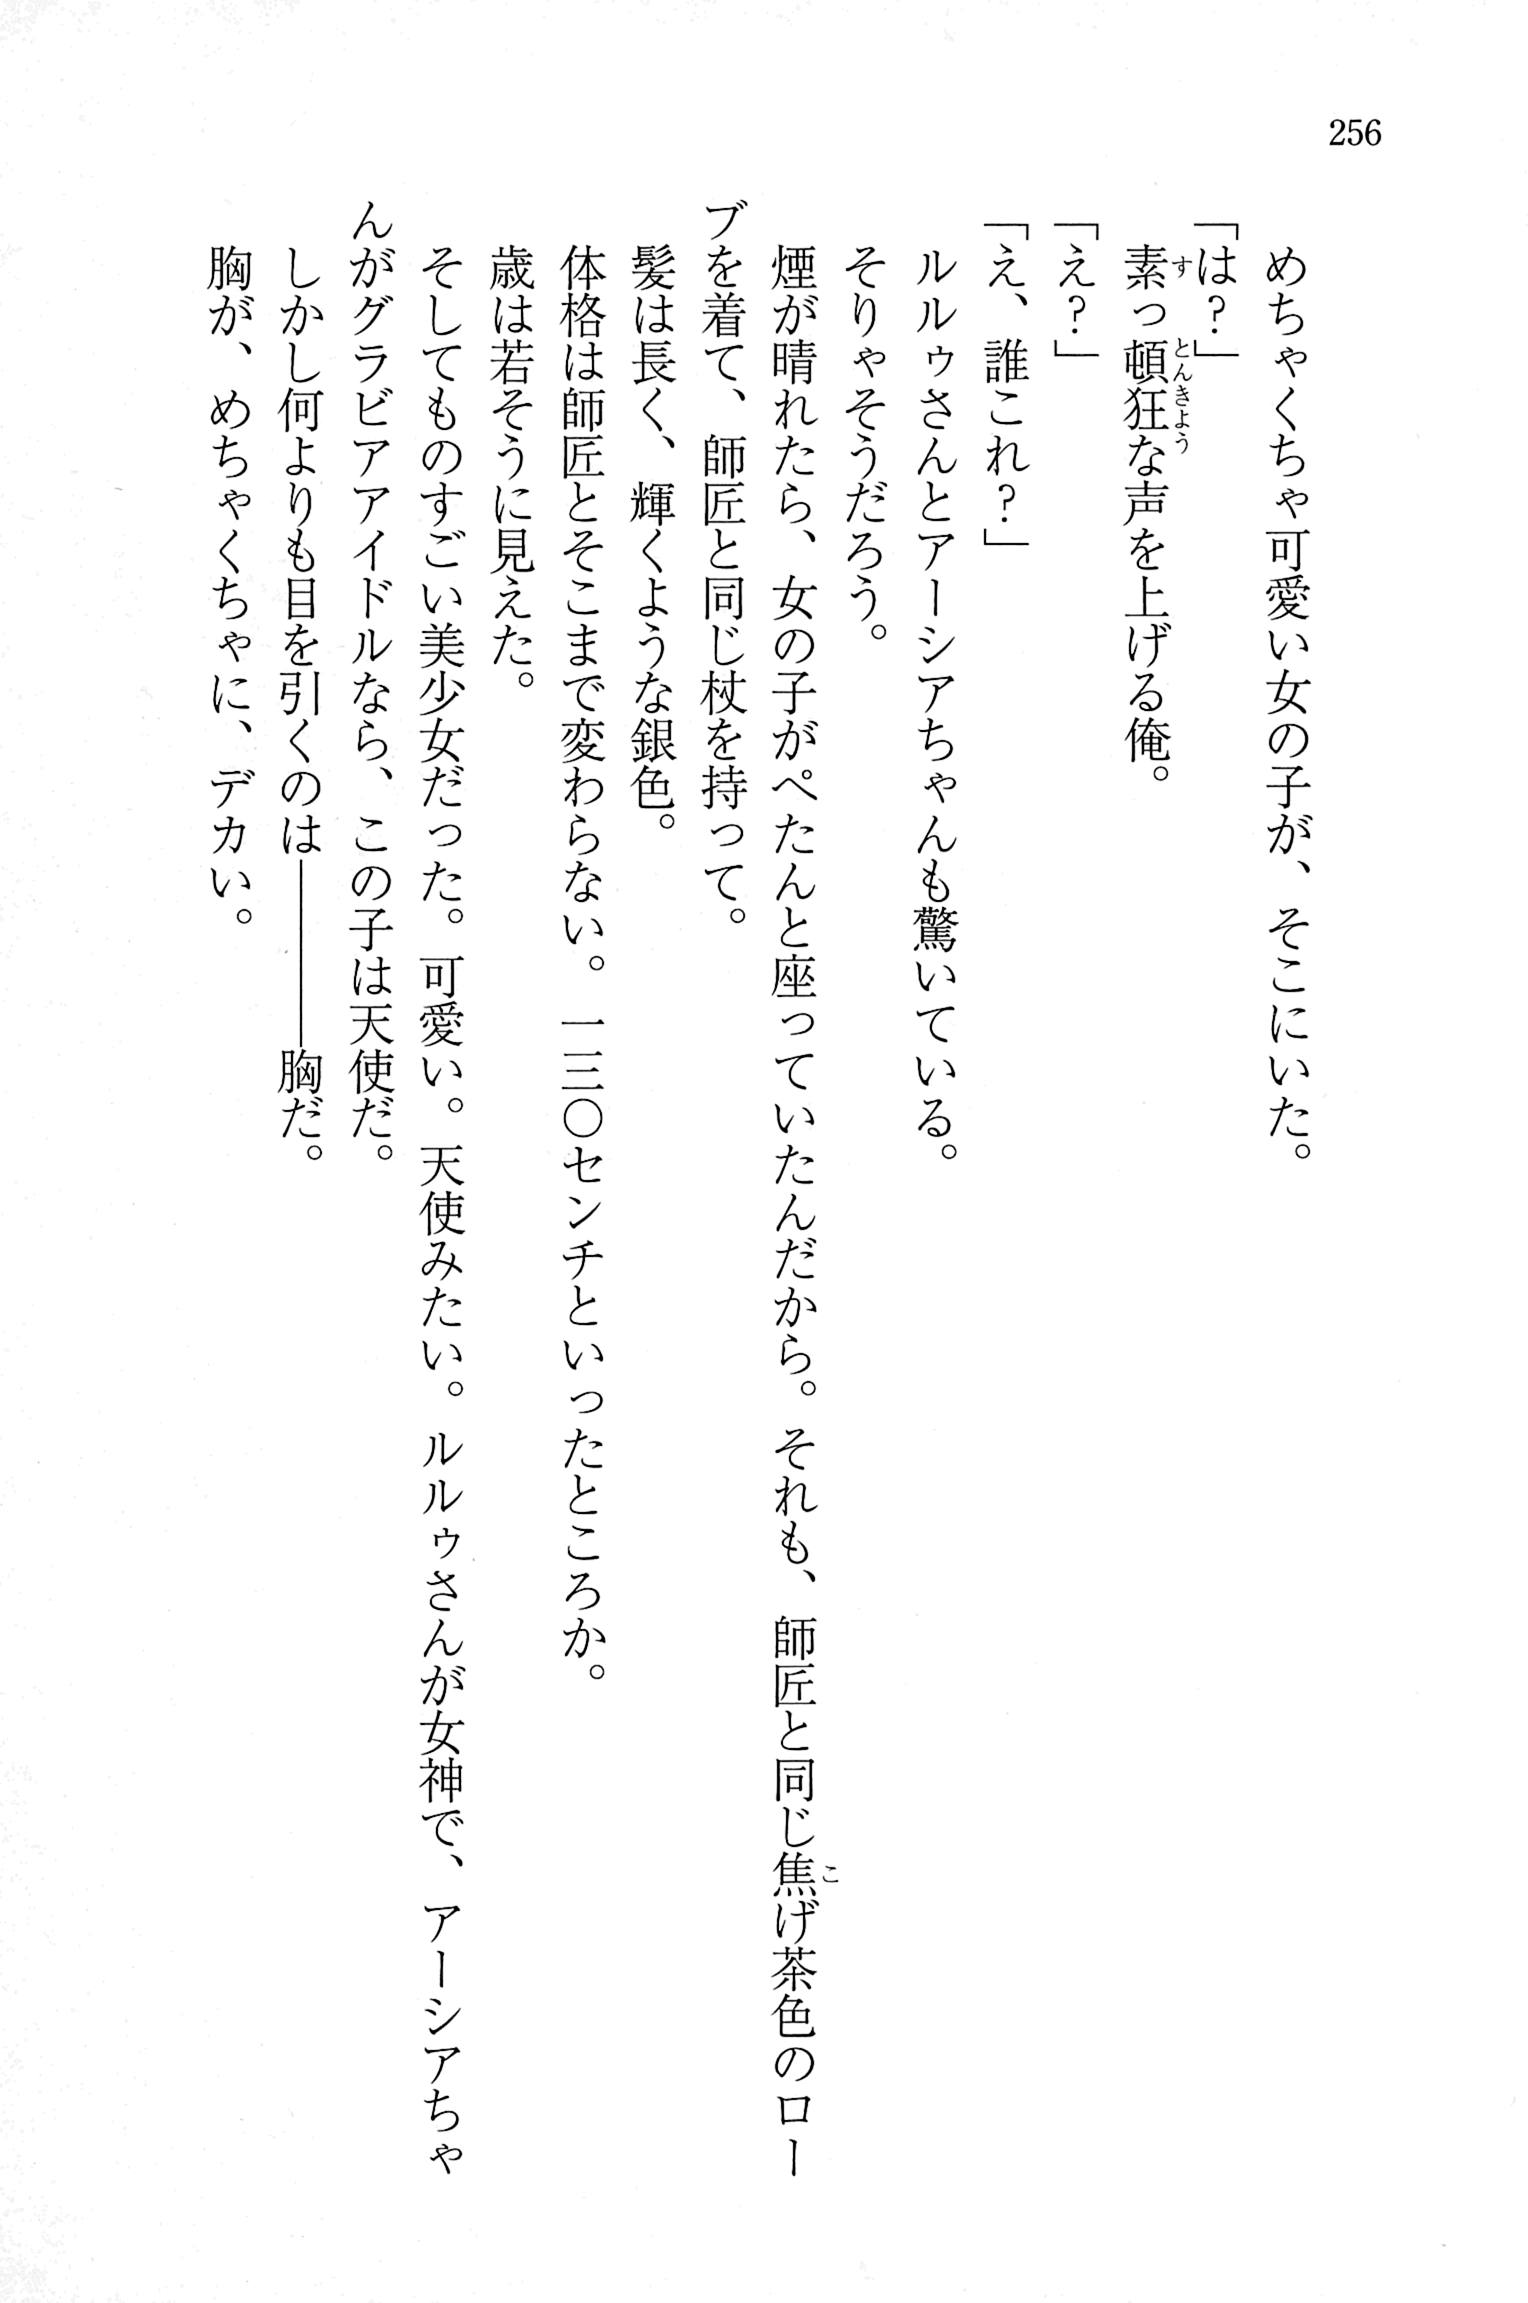 256
めちゃくちゃ可愛い女の子が、そこにいた。
「は？」
素っ頓狂な声を上げる俺。
「え？」
「え、誰これ？」
ルルゥさんとアーシアちゃんも驚いている。
そりゃそうだろう。
煙が晴れたら、女の子がぺたんと座っていたんだから。それも、師匠と同じ焦げ茶色のロー
ブを着て、師匠と同じ杖を持って。
髪は長く、輝くような銀色。
体格は師匠とそこまで変わらない。一三〇センチといったところか。
歳は若そうに見えた。
そしてものすごい美少女だった。可愛い。天使みたい。ルルゥさんが女神で、アーシアちゃ
んがグラビアアイドルなら、この子は天使だ。
しかし何よりも目を引くのは――――胸だ。
胸が、めちゃくちゃに、デカい。